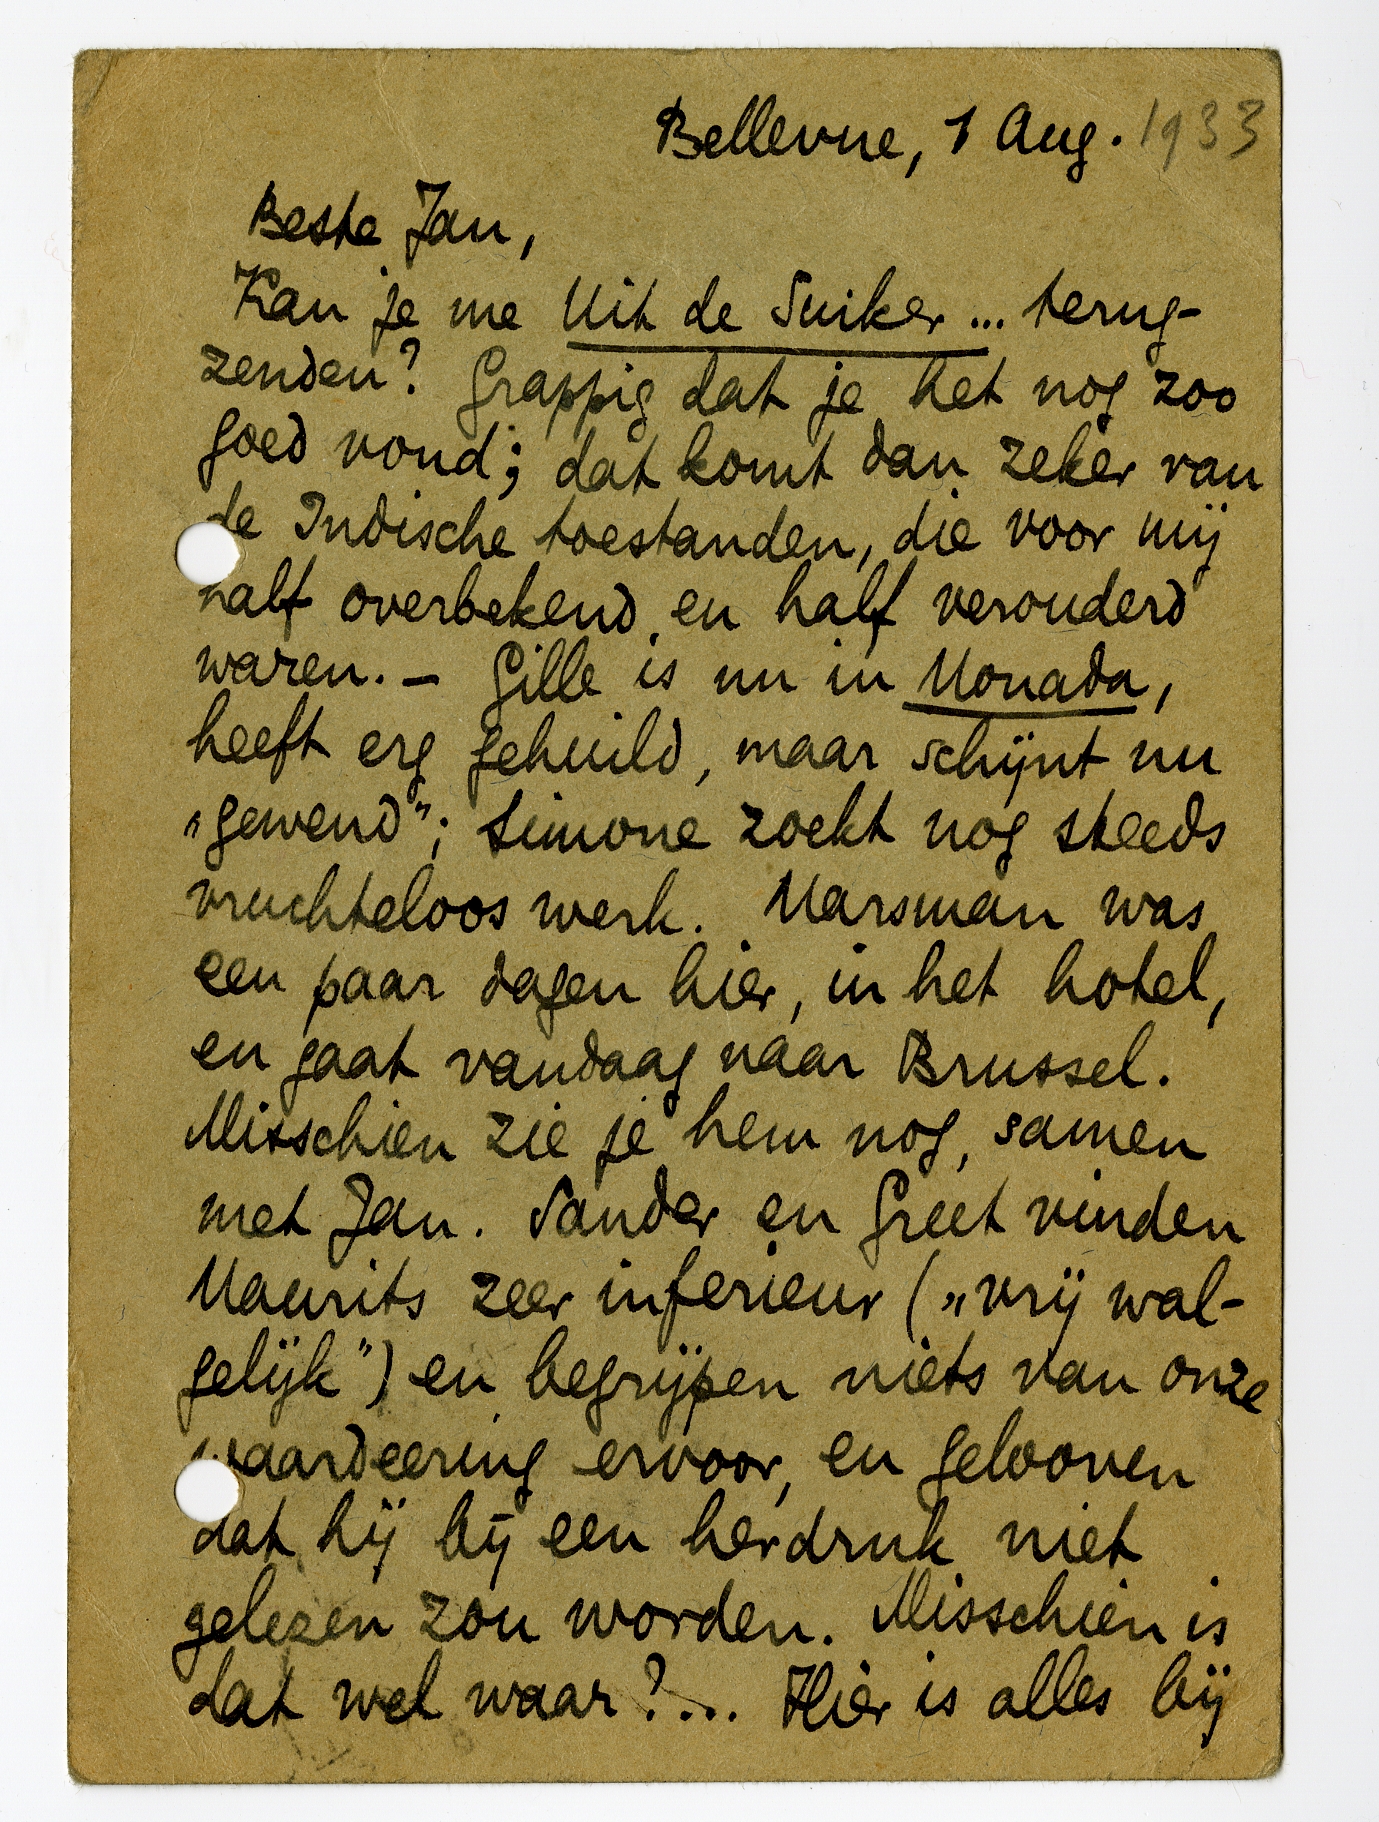 Bellevue, 1 Aug. 1933
Beste Jan,
Kan je me Uit de Suiker... terug-
zenden? Grappig dat je het nog zoo
goed vond; dat komt dan zeker van
de Indische toestanden, die voor mij
half overbekend en half verouderd
waren. — Gille is nu in Monada,
heeft erg gehuild, maar schijnt nu
„gewend”; Simone zoekt nog steeds
vruchteloos werk. Marsman was
een paar dagen hier, in het hotel,
en gaat vandaag naar Brussel.
Misschien zie je hem nog, samen
met Jan. Sander en Greet vinden
Maurits zeer inferieur („vrij wal-
gelijk”) en begrijpen niets van onze
waardeering ervoor, en gelooven
dat hij bij een herdruk niet
gelezen zou worden. Misschien is
dat wel waar?... Hier is alles bij